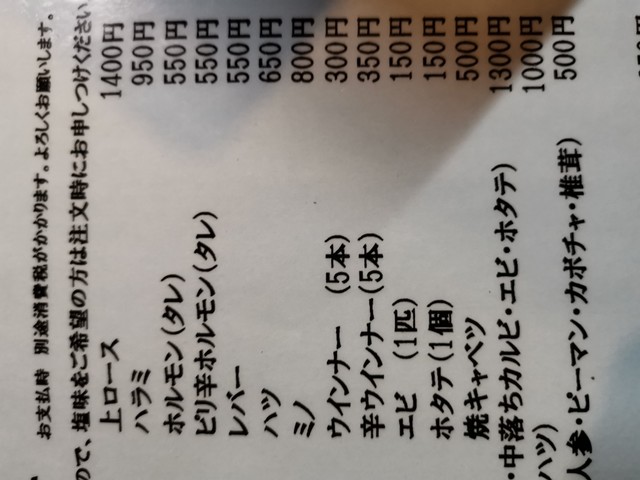 お支払時 別途消費税がかかります。よろしくお願いします。
ので、塩味をご希望の方は注文時にお申しつけください
上ロース 1400円
ハラミ 950円
ホルモン(タレ) 550円
ピリ辛ホルモン(タレ) 550円
レバー 550円
ハツ 650円
ミノ 800円
ウインナー (5本) 300円
辛ウインナー(5本) 350円
エビ (1匹) 150円
ホタテ(1個) 150円
焼キャベツ 500円
・中落ちカルビ・エビ・ホタテ) 1300円
ハツ) 1000円
人参・ピーマン・カボチャ・椎茸) 500円